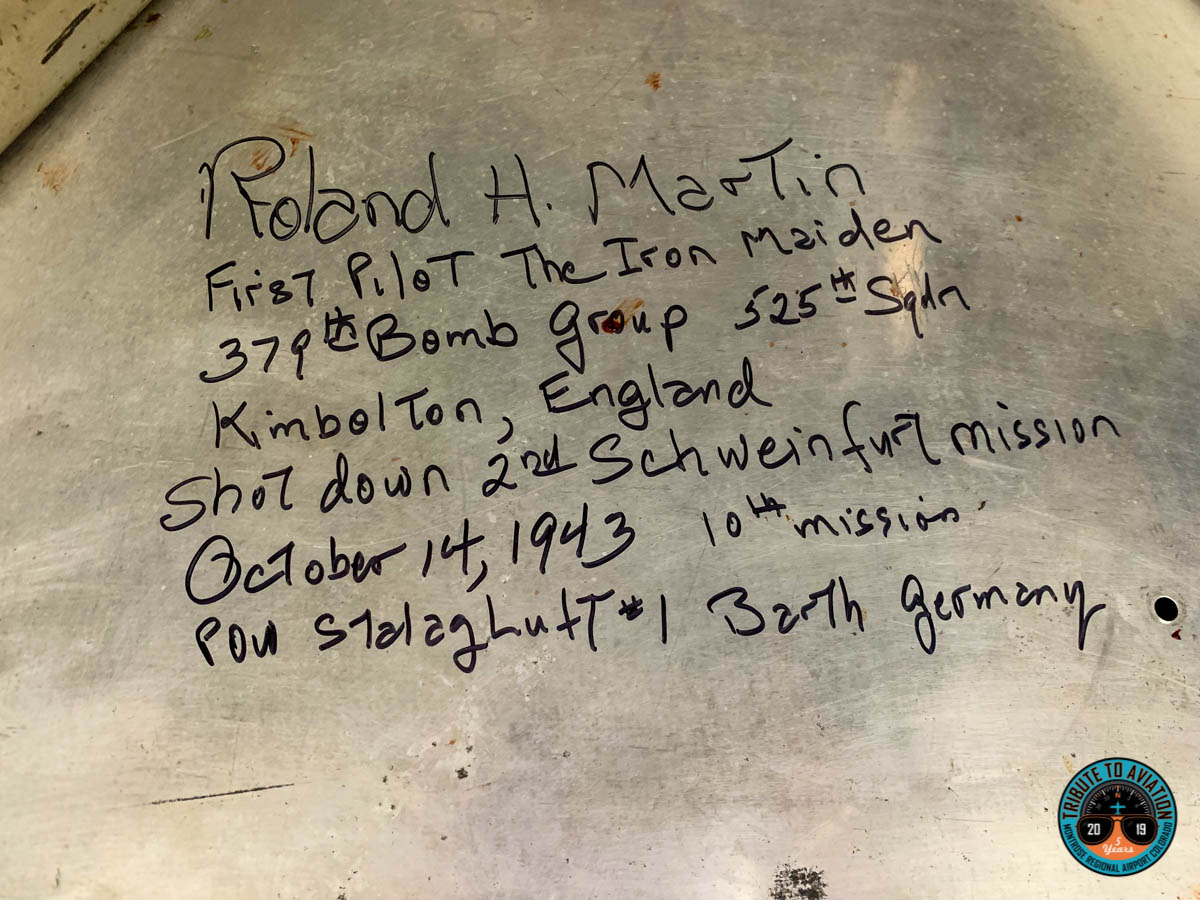 Roland H. Martin
First Pilot The Iron Maiden
379th Bomb Group 525th Sqdn
Kimbolton, England
Shot down 2nd Schweinfurt mission
October 14, 1943 10th mission
POW Stalag Luft #1 Barth Germany
TRIBUTE TO AVIATION
N
20 19
5
Years
MONTROSE REGIONAL AIRPORT COLORADO